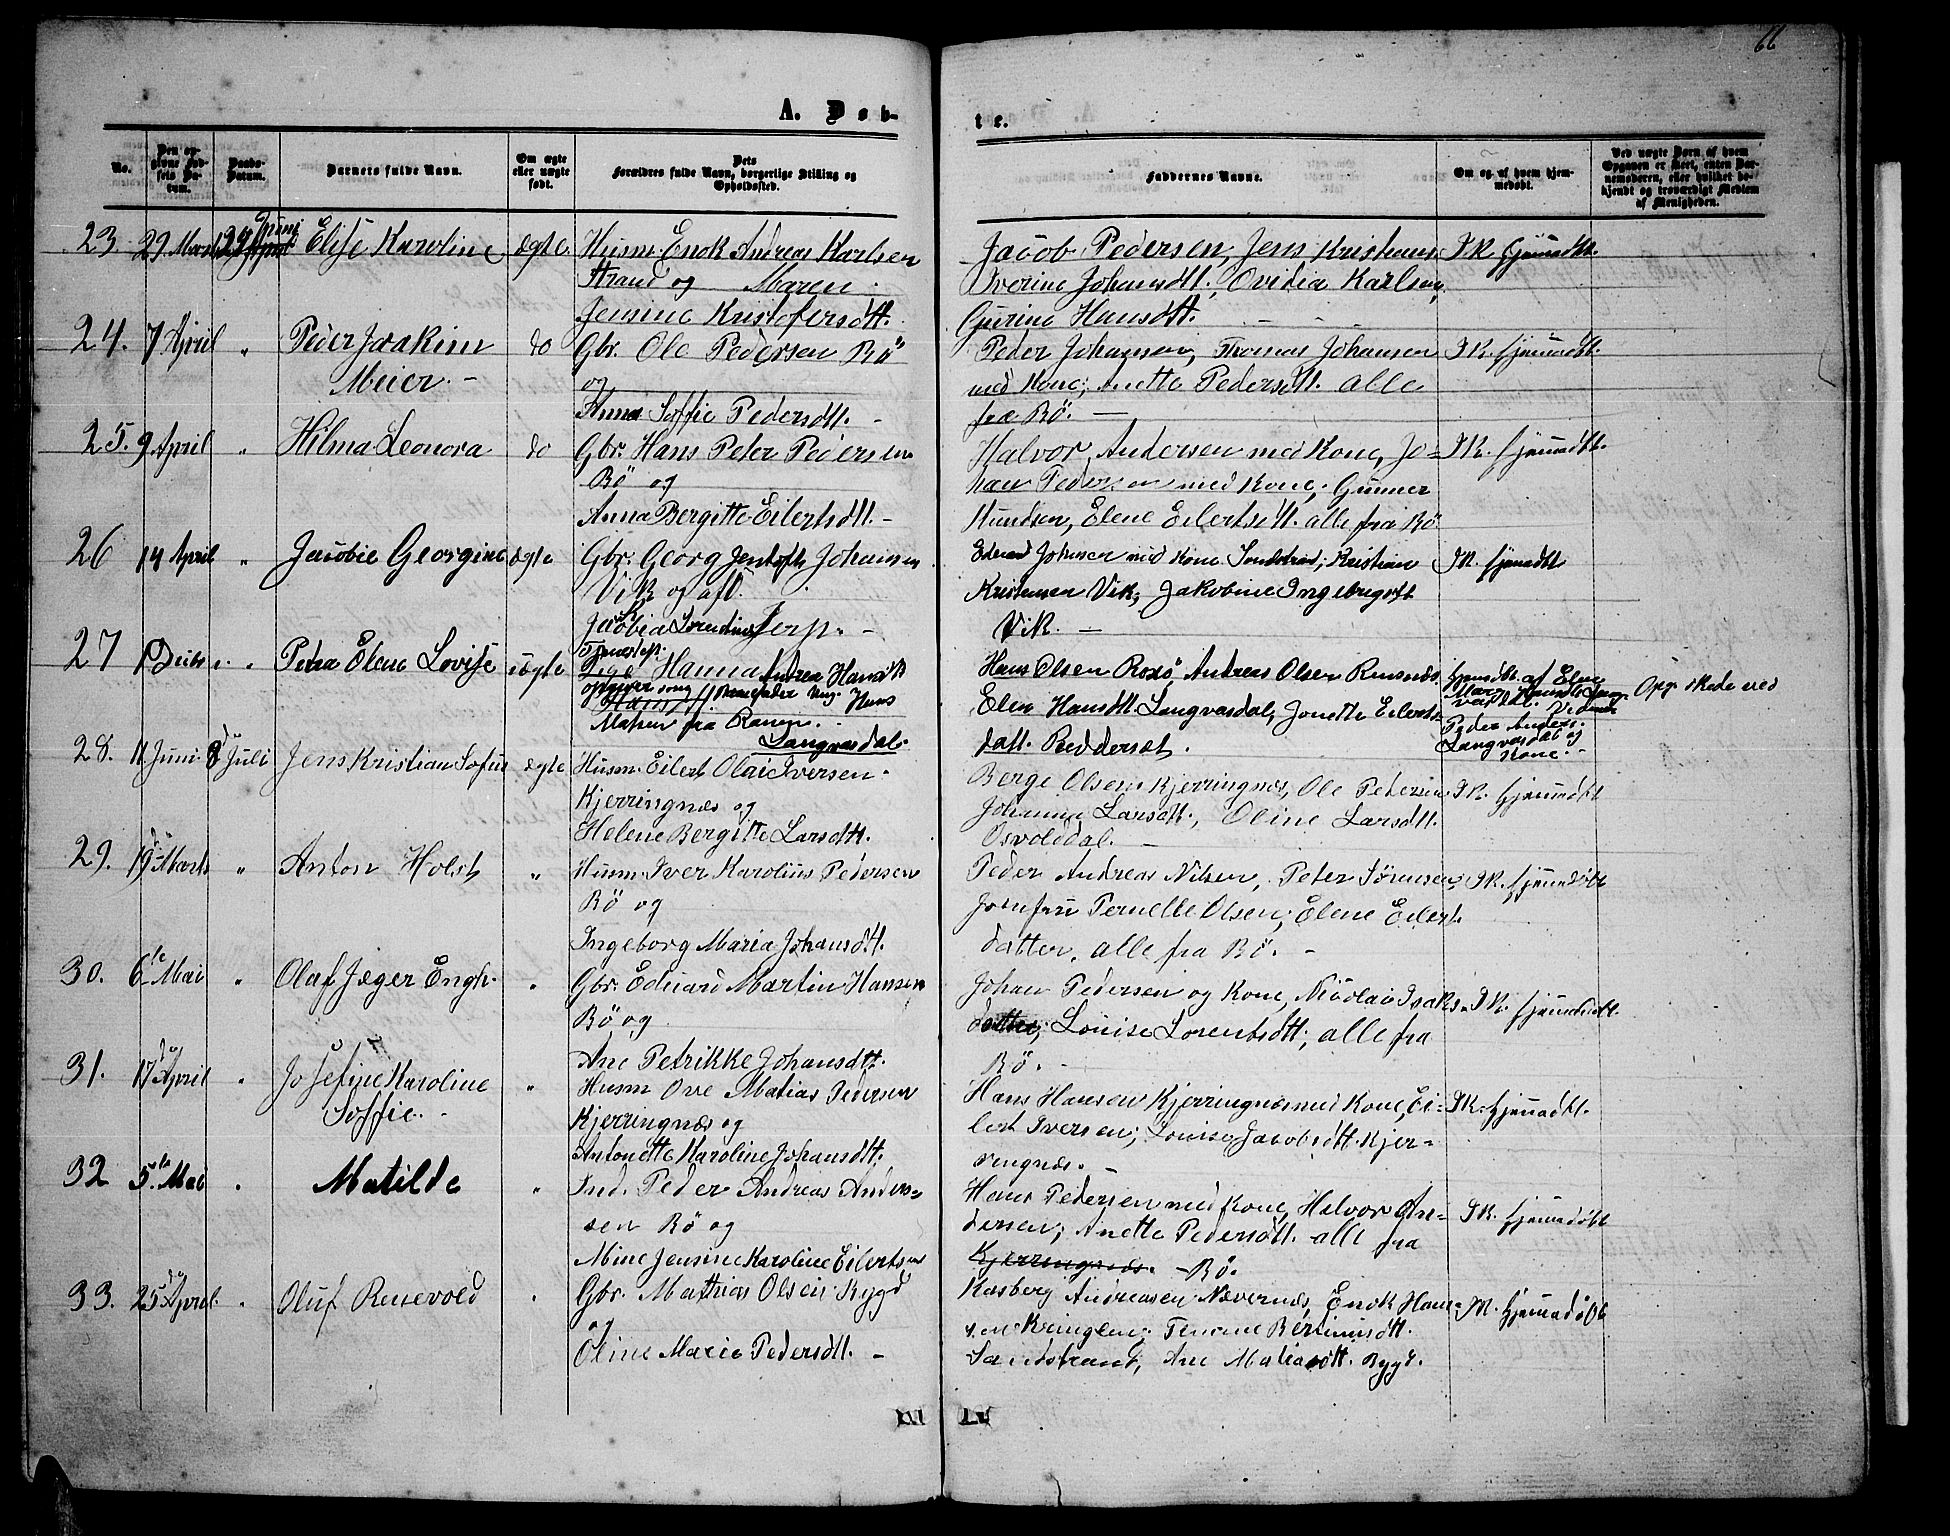 66
A. Døb-
te.
No.
Den op-
givne Fød-
sels Da-
tum.
Daabs-
Datum.
Barnets fulde Navn.
Om ægte
eller uægte
født.
Dets
Forældres fulde Navn, borgerlige Stilling og
Opholdssted.
Faddernes Navne.
Om og af hvem hjem-
medøbt.
Ved uægte Børn af hvem
Opgaven er skeet, enten Bar-
nemoderen, eller hvilket be-
kjendt og troværdigt Medlem
af Menigheden.
23. 29 Marts 29 Juni Elise Karoline ægte Husm. Enok Andreas Karlsen
Strand og Maren
Jensine Kristofersdtt.
Jacob Pedersen, Jens Kristians.
Iverine Johansdtt., Ovidia Karlsen,
Gurine Hansdtt. -
I K. hjemdbt.
24. 7 April " Peder Joakim
Meier. -
do Gbr. Ole Pedersen Bö
og
Anna Soffie Pedersdtt. -
Peder Johansen, Thomas Johansen
med Kone, Anette Pedersdtt. alle
fra Bö. -
I K. hjemdbt.
25. 9 April " Hilma Leonora do Gbr. Hans Peter Pedersen
Bö og
Anna Bergitte Eilertsdtt. -
Halvor Andersen med Kone, Jo-
han Pedersen med Kone, Gunner
Hundsen, Elene Eilertsdtt. alle fra Bö
I K. hjemdbt.
26 14 April " Jacobie Georgine ægte Gbr. Georg Jentoft Johansen
Vik og
Jacobia Lorentine Jerp. -
Johnsen med Kone Sandstrand, Kristian
Kristensen Vik, Jakobine Ingebrigtsdt
Vik. -
I K. hjemdbt
27 " Petra Elene Lovise uægte Tjenestep.
Pige Hanna Andrea Hansdt
opgiver som
Barnefader Ung. Hans
Matsen fra Ranen. -
Langvasdal.
Hans Olsen Rosö, Andreas Olsen
Elen Hansdtt. Langvasdal, Jonette Eilerts-
datt. Reddersæt.
hjemdbt. af Elen
Langvasdal og
Kone. -
Opg. skede ved
28. 11 Juni 8 Juli Jens Kristian Sofus ægte Husm. Eilert Olai Iversen.
Kjerringnæs og
Helene Bergitte Larsdtt.
Berge Olsen Kjerringnæs, Ole Pedersen
Johanna Larsdtt., Oline Larsdtt.
Osvolddal. -
I K. hjemdbt
29. 19 Marts " Anton Holst " Husm. Iver Karolius Pedersen
Bö og
Ingeborg Maria Johansdtt.
Peder Andreas Nilsen, Peter Sörensen,
Jomfru Pernelle Olsen, Elene Eilert
datter, alle fra Bö. -
I K. hjemdöbt
30. 6te Mai " Olaf Jæger Engh. " Gbr. Eduard Martin Hansen
Bö, og
Ane Petrikke Johansdtt.
Johan Pedersen og Kone, Nicolai Isaks-
datter, Louise Lorentsdtt, alle fra
Bö. -
I K. hjemdöbt.
31. 17 April " Josefine Karoline
Soffie. -
" Husm Ove Matias Pedersen
Kjerringnæs og
Antonette Karoline Johansdtt.
Hans Hansen Kjerringnæs med Kone, Ei-
lert Iversen, Louise Jacobsdtt. Kjer-
ringnæs. -
I K. hjemdbt.
32 5te Mai " Matilde " Ind. Peder Andreas Ander-
sen Bö og
Mine Jensine Karoline Eilertsen
Hans Pedersen med Kone, Halvor An-
dersen, Anette Pedersdtt. alle fra
Kjerringnæs. - Bö.
I K. hjemdöbt
33. 25 April " Oluf Rensvold " Gbr. Mathias Olsen Bygd
og
Oline Marie Pedersdtt. -
Kasberg Andreasen Nævernæs, Enok Han-
sen Kringlen,
Sandstrand, Ane Matiasdtt. Bygd.
I K. hjemdöbt